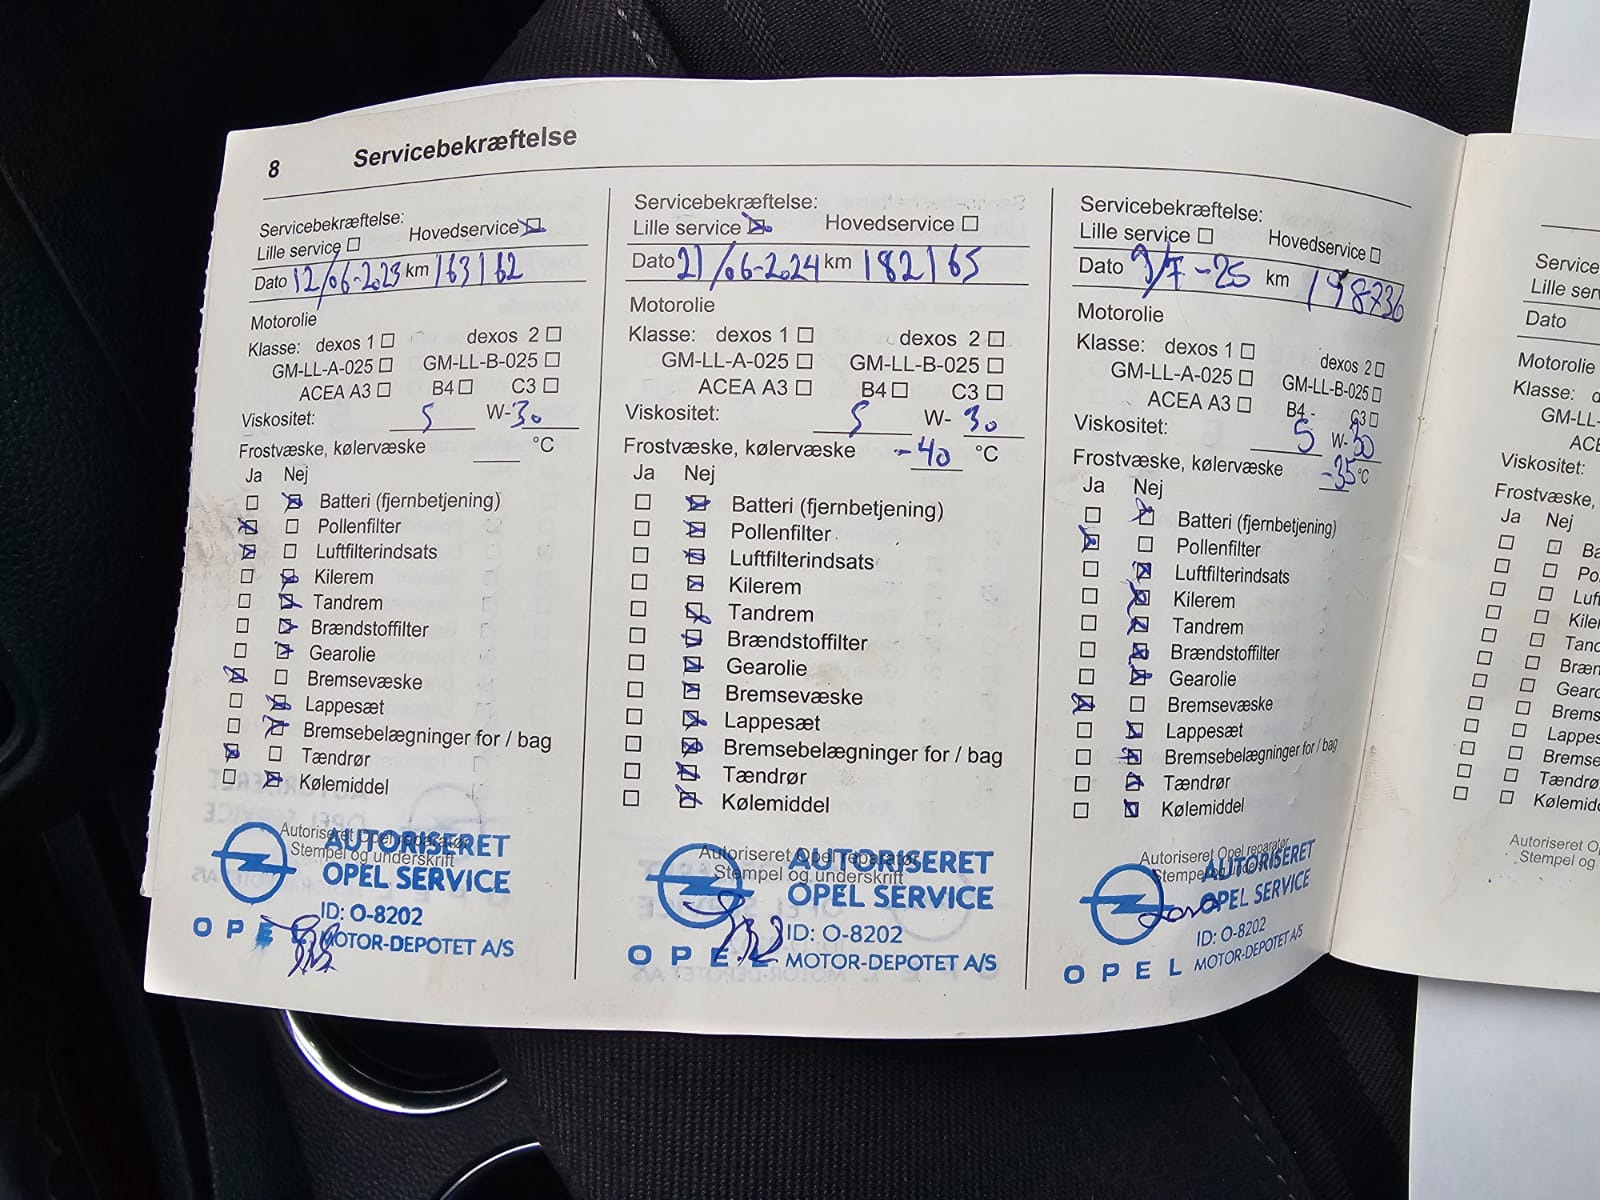 8 Servicebekræftelse
Servicebekræftelse:
Lille service ☐ Hovedservice ☒
Dato 12/06-2023 km 163162
Motorolie
Klasse: dexos 1 ☐ dexos 2 ☐
GM-LL-A-025 ☐ GM-LL-B-025 ☐
ACEA A3 ☐ B4 ☐ C3 ☐
Viskositet: 5 W-30
Frostvæske, kølervæske °C
Ja Nej
☐ ☒ Batteri (fjernbetjening)
☒ ☐ Pollenfilter
☒ ☐ Luftfilterindsats
☐ ☒ Kilerem
☐ ☒ Tandrem
☐ ☒ Brændstoffilter
☐ ☒ Gearolie
☒ ☐ Bremsevæske
☐ ☒ Lappesæt
☐ ☒ Bremsebelægninger for / bag
☒ ☐ Tændrør
☐ ☒ Kølemiddel
Autoriseret Opel reparatør
Stempel og underskrift
AUTORISERET
OPEL SERVICE
ID: O-8202
OPEL MOTOR-DEPOTET A/S
Servicebekræftelse:
Lille service ☒ Hovedservice ☐
Dato 21/06-2024 km 182165
Motorolie
Klasse: dexos 1 ☐ dexos 2 ☐
GM-LL-A-025 ☐ GM-LL-B-025 ☐
ACEA A3 ☐ B4 ☐ C3 ☐
Viskositet: 5 W- 30
Frostvæske, kølervæske -40 °C
Ja Nej
☐ ☒ Batteri (fjernbetjening)
☐ ☒ Pollenfilter
☐ ☒ Luftfilterindsats
☐ ☒ Kilerem
☐ ☒ Tandrem
☐ ☒ Brændstoffilter
☐ ☒ Gearolie
☐ ☒ Bremsevæske
☐ ☒ Lappesæt
☐ ☒ Bremsebelægninger for / bag
☐ ☒ Tændrør
☐ ☒ Kølemiddel
Autoriseret Opel reparatør
Stempel og underskrift
AUTORISERET
OPEL SERVICE
ID: O-8202
OPEL MOTOR-DEPOTET A/S
Servicebekræftelse:
Lille service ☐ Hovedservice ☐
Dato 9/7-25 km 198736
Motorolie
Klasse: dexos 1 ☐ dexos 2 ☐
GM-LL-A-025 ☐ GM-LL-B-025 ☐
ACEA A3 ☐ B4 - C3 ☐
Viskositet: 5 W-30
Frostvæske, kølervæske -35 °C
Ja Nej
☐ ☒ Batteri (fjernbetjening)
☒ ☐ Pollenfilter
☐ ☒ Luftfilterindsats
☐ ☒ Kilerem
☐ ☒ Tandrem
☐ ☒ Brændstoffilter
☐ ☒ Gearolie
☒ ☐ Bremsevæske
☐ ☒ Lappesæt
☐ ☒ Bremsebelægninger for / bag
☐ ☒ Tændrør
☐ ☒ Kølemiddel
Autoriseret Opel reparatør
Stempel og underskrift
AUTORISERET
OPEL SERVICE
ID: O-8202
OPEL MOTOR-DEPOTET A/S
Service
Lille
Dato
Motorolie
Klasse:
GM-LL-
Viskositet:
Frostvæske,
Ja Nej
☐ ☐
☐ ☐
☐ ☐
☐ ☐
☐ ☐
☐ ☐
☐ ☐
☐ ☐
☐ ☐
☐ ☐
☐ ☐ Tændrør
☐ ☐
Autoriseret
Stempel og